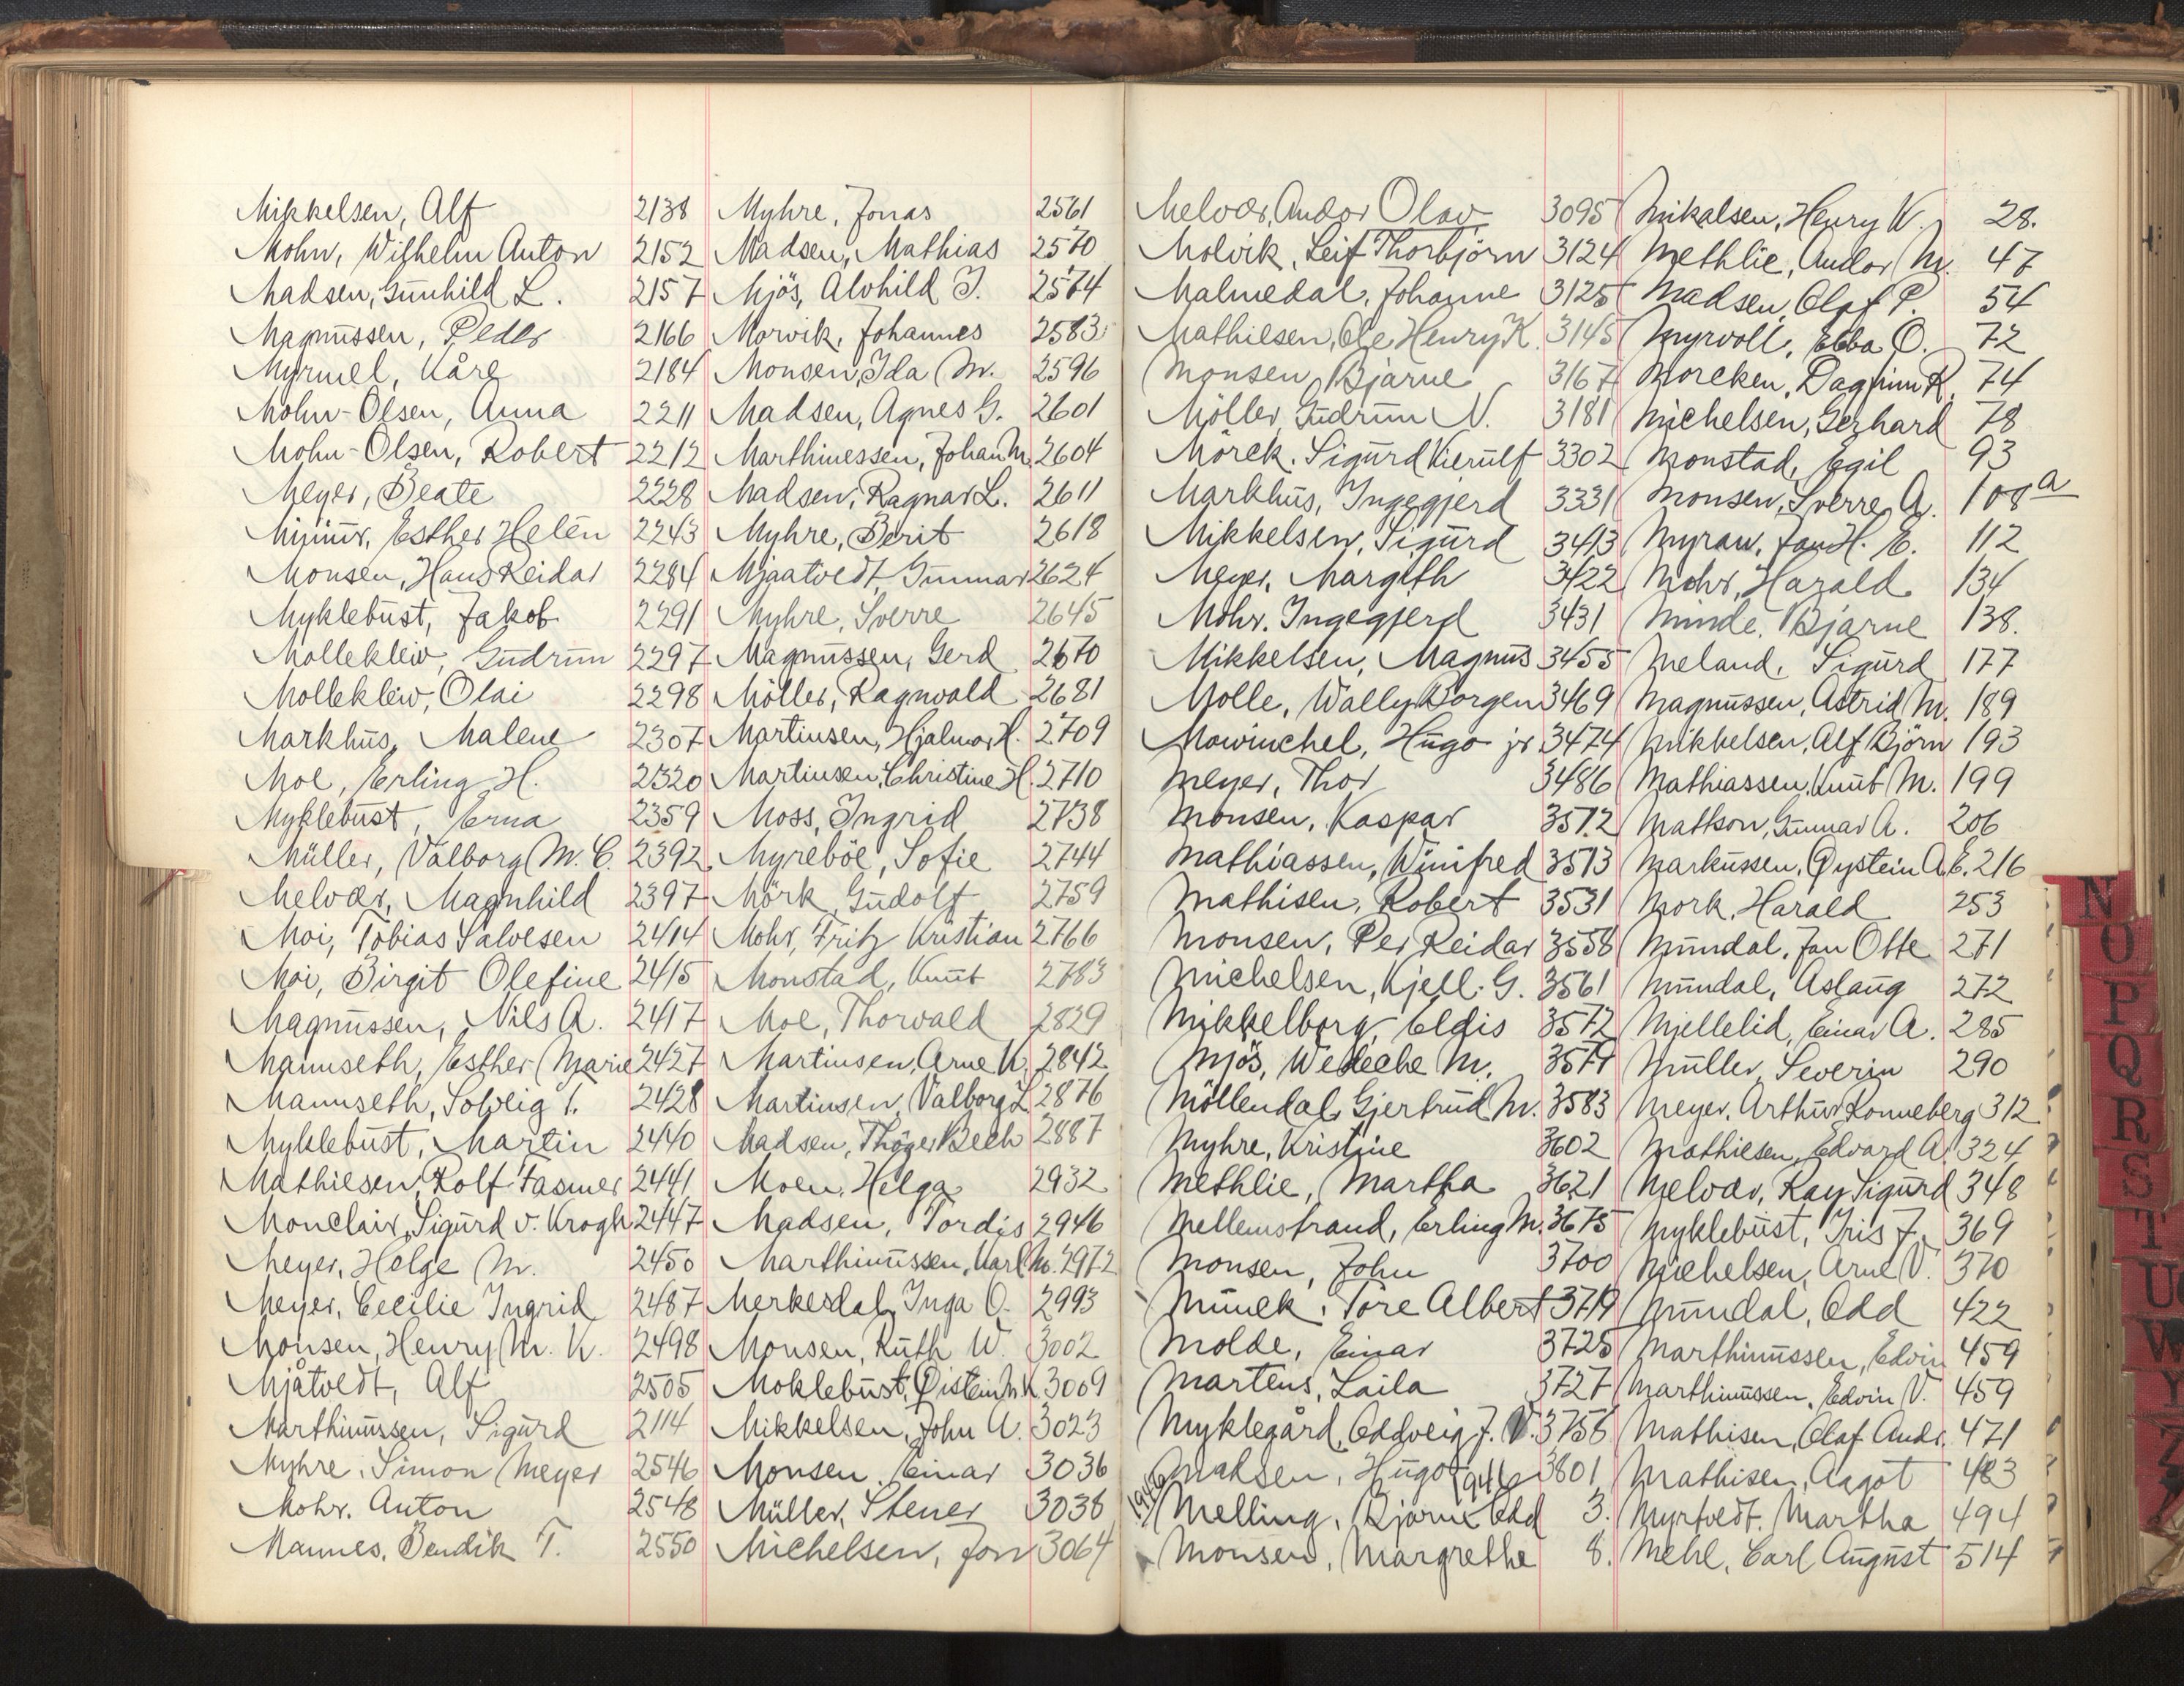 Mikkelsen, Alf 2138
Mohn, Wilhelm Anton 2152
Madsen, Gunhild L. 2157
Magnussen, Peder 2166
Myrmel, Kåre 2184
Mohn-Olsen, Anna 2211
Mohn-Olsen, Robert 2212
Meyer, Beate 2228
Esther Helén 2243
Monsen, Hans Reidar 2284
Myklebust, Jakob 2291
Molleklew, Gudrun 2297
Molleklew, Olai 2298
Markhus, Malene 2307
Moe, Erling H. 2320
Myklebust, Erna 2359
Müller, Valborg M. C. 2392
Melvær, Magnhild 2397
Moi, Tobias Salvesen 2414
Moi, Birgit Olefine 2415
Magnussen, Nils A. 2417
Mannseth, Esther Marie 2427
Mannseth, Solveig T. 2428
Myklebust, Martin 2440
Mathiesen, Rolf Fasmer 2441
Monclair, Sigurd v. Krogh 2447
Meyer, Helge M. 2450
Meyer, Cecilie Ingrid 2487
Monsen, Henry M. K. 2498
Mjåtvedt, Alf 2505
Marthinussen, Sigurd 2114
Myhre, Simon Meyer 2546
Mohr. Anton 2548
Mannes, Bendik T. 2550
Myhre, Jonas 2561
Madsen, Mathias 2570
Mjös, Alvhild J. 2574
Morvik, Johannes 2583
Monsen, Ida M. 2596
Madsen, Agnes G. 2601
Marthinessen, Johan M. 2604
Madsen, Ragnar L. 2611
Myhre, Berit 2618
Mjaatvedt, Gunnar 2624
Myhre, Sverre 2645
Magnussen, Gerd 2670
Möller, Ragnvald 2681
Martinsen, Hjalmar H. 2709
Martinsen, Christine H. 2710
Moss, Ingrid 2738
Myreböe, Sofie 2744
Mörk, Gudolf 2759
Mohr, Fritz Kristian 2766
Monstad, Knut 2783
Moe, Thorvald 2829
Martinsen, Arne K. 2842
Martinsen, Valborg L. 2876
Madsen, Thöger Bech 2887
Moen, Helga 2932
Madsen, Tordis 2946
Marthinussen, Karl M. 2972
Merkesdal, Inga O. 2993
Monsen, Ruth W. 3002
Moklebust, Øistein M. K. 3009
Mikkelsen, John A. 3023
Monsen, Einar 3036
Müller, Stener 3038
Michelsen, Jon 3064
Melvær, Andor Olav 3095
Molvik, Leif Thorbjörn 3124
Malmedal, Johanne 3125
Mathiesen, Ole Henry K. 3145
Monsen, Bjarne 3167
Möller, Gudrun N. 3181
Mörck, Sigurd Kierulf 3302
Markhus, Ingegjerd 3331
Mikkelsen, Sigurd 3413
Meyer, Margith 3422
Mohr. Ingegjerd 3431
Mikkelsen, Magnus 3455
Molle, Wally Borgen 3469
Mowinckel, Hugo jr 3474
Meyer, Thor 3486
Monsen, Kaspar 3512
Mathiassen, Winifred 3513
Mathisen, Robert 3531
Monsen, Per Reidar 3558
Michelsen, Kjell G. 3561
Mikkelborg, Eldis 3572
Mjös, Wedeche M. 3577
Möllendal, Gjertrud M. 3583
Myhre, Kristine 3602
Methlie, Martha 3621
Mellemstrand, Erling M. 3675
Monsen, John 3700
Munck, Tore Albert 3719
Molde, Einar 3725
Martens, Laila 3727
Myklegård, Oddveig J. V. 3756
Madsen, Hugo 3801
1946 1946
Melling, Bjarne Odd 3.
Monsen, Margrethe 8.
Mikalsen, Henry K. 28.
Methlie, Andor M. 47
Madsen, Olaf P. 54
Myrvoll, Ebba O. 72
Morcken, Dagfinn R. 74
Michelsen, Gerhard 78
Monstad, Egil 93
Monsen, Sverre A. 108 a
Myran, Jan H. E. 112
Mohr, Harald 134
Minde, Bjarne 138.
Meland, Sigurd 177
Magnussen, Astrid M. 189
Mikkelsen, Alf Björn 193
Mathiassen, Knut M. 199
Mattson, Gunnar A. 206
Markussen, Øystein A. E. 216
Mork, Harald 253
Mundal, Jan Otte 271
Mundal, Aslaug 272
Mjellelid, Einar A. 285
Müller, Severin 290
Meyer, Arthur Ronneberg 312
Mathiesen, Edvard A. 324
Melvær, Ray Sigurd 348
Myklebust, Iris J. 369
Michelsen, Arne V. 370
Mundal, Odd 422
Marthinussen, Edvin 459
Marthinussen, Edvin V. 459
Mathisen, Olaf Andr. 471
Mathisen, Aagot 483
Myrtvedt, Martha 494
Mehl, Carl August 514
N
O
P
Q
R
S
T
U
W
Y
Z